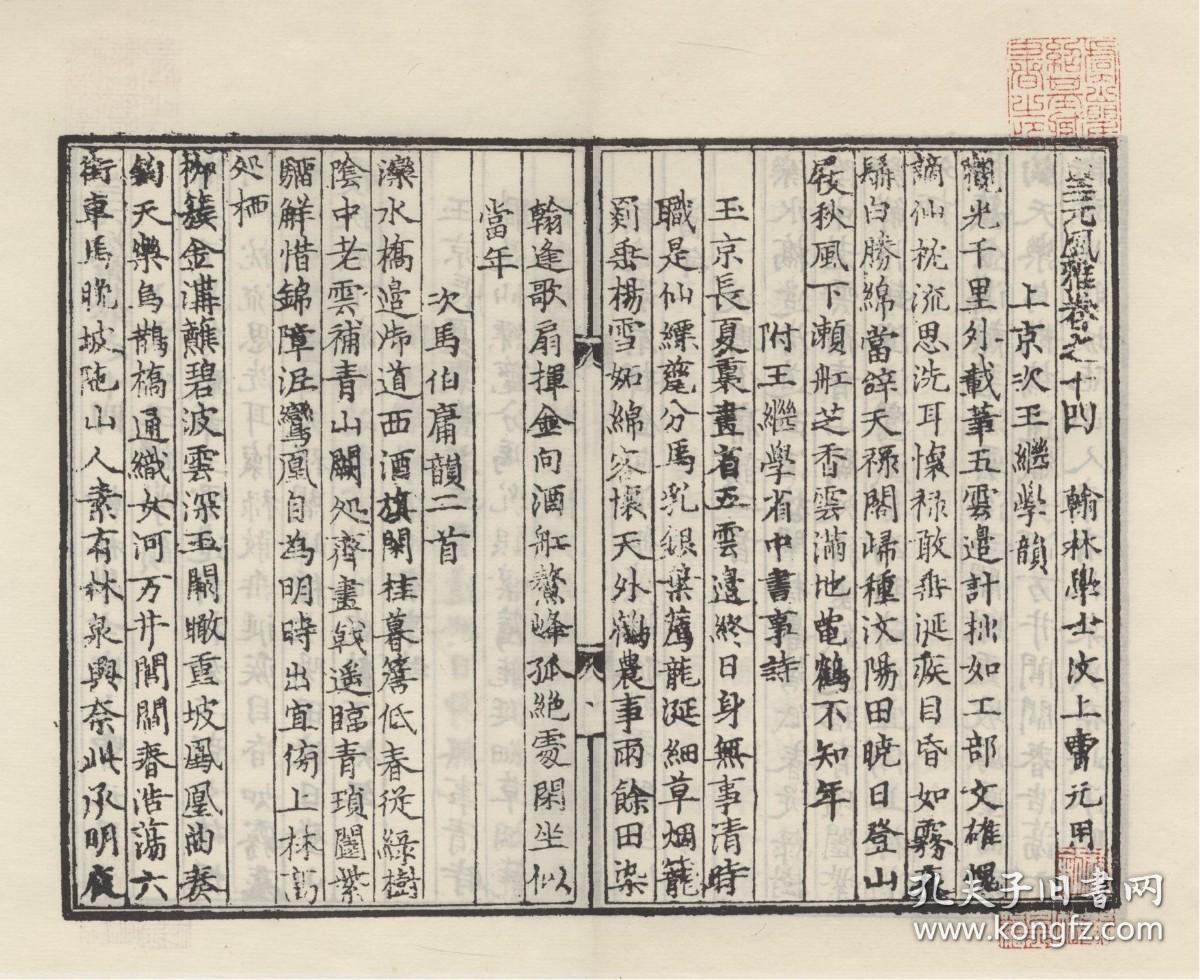 皇元風雅卷之十四　翰林學士汶上曹元用
上京次王繼學韻
觀光千里外載筆五雲邉計拙如工部文雄愧
謫仙枕流思洗耳懷禄敢垂涎疾目昏如霧
鬂白勝綿當辝天禄閣歸種汶陽田曉日登山
屐秋風下瀬舡芝香雲滿地苗鶴不知年
附王繼學省中書事詩
玉京長夏裏畫省五雲邉終日身無事清時
職是仙縹甆分馬乳銀葉薦龍涎細草烟籠
罽垂楊雪妬綿客懷天外鶴農事雨餘田染
翰逢歌扇揮金向酒舡鰲峰孤絶處閑坐似
當年
次馬伯庸韻二首
灤水橋邉御道西酒旗閑挂暮簷低春從緑樹
陰中老雲補青山闕処齊畫戟遥臨青瑣闥紫
騮解惜錦障泥鸞凰自為明時出宜傍上林高
処栖
柳簇金溝蘸碧波雲深玉闕瞰重坡鳳凰曲奏
鈞天樂烏鵲橋通織女河万井閭閻春浩蕩六
街車馬晚坡陁山人素有林泉興奈此承明夜
孔夫子旧书网
www.kongfz.com